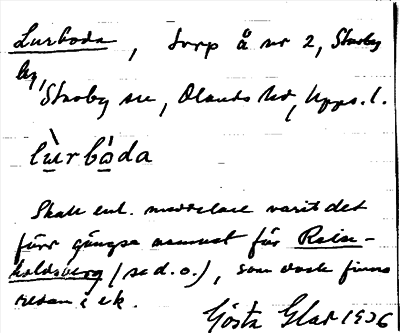 Lurboda, torp å nr 2, Stavby
by,
Stavby sn, Olands hd, Upps. l.
lùrbòda
Skall enl. meddelare varit det
förr gängse namnet för
(se d. o.), som dock finns
redan i ek.
Gösta Glad 1936